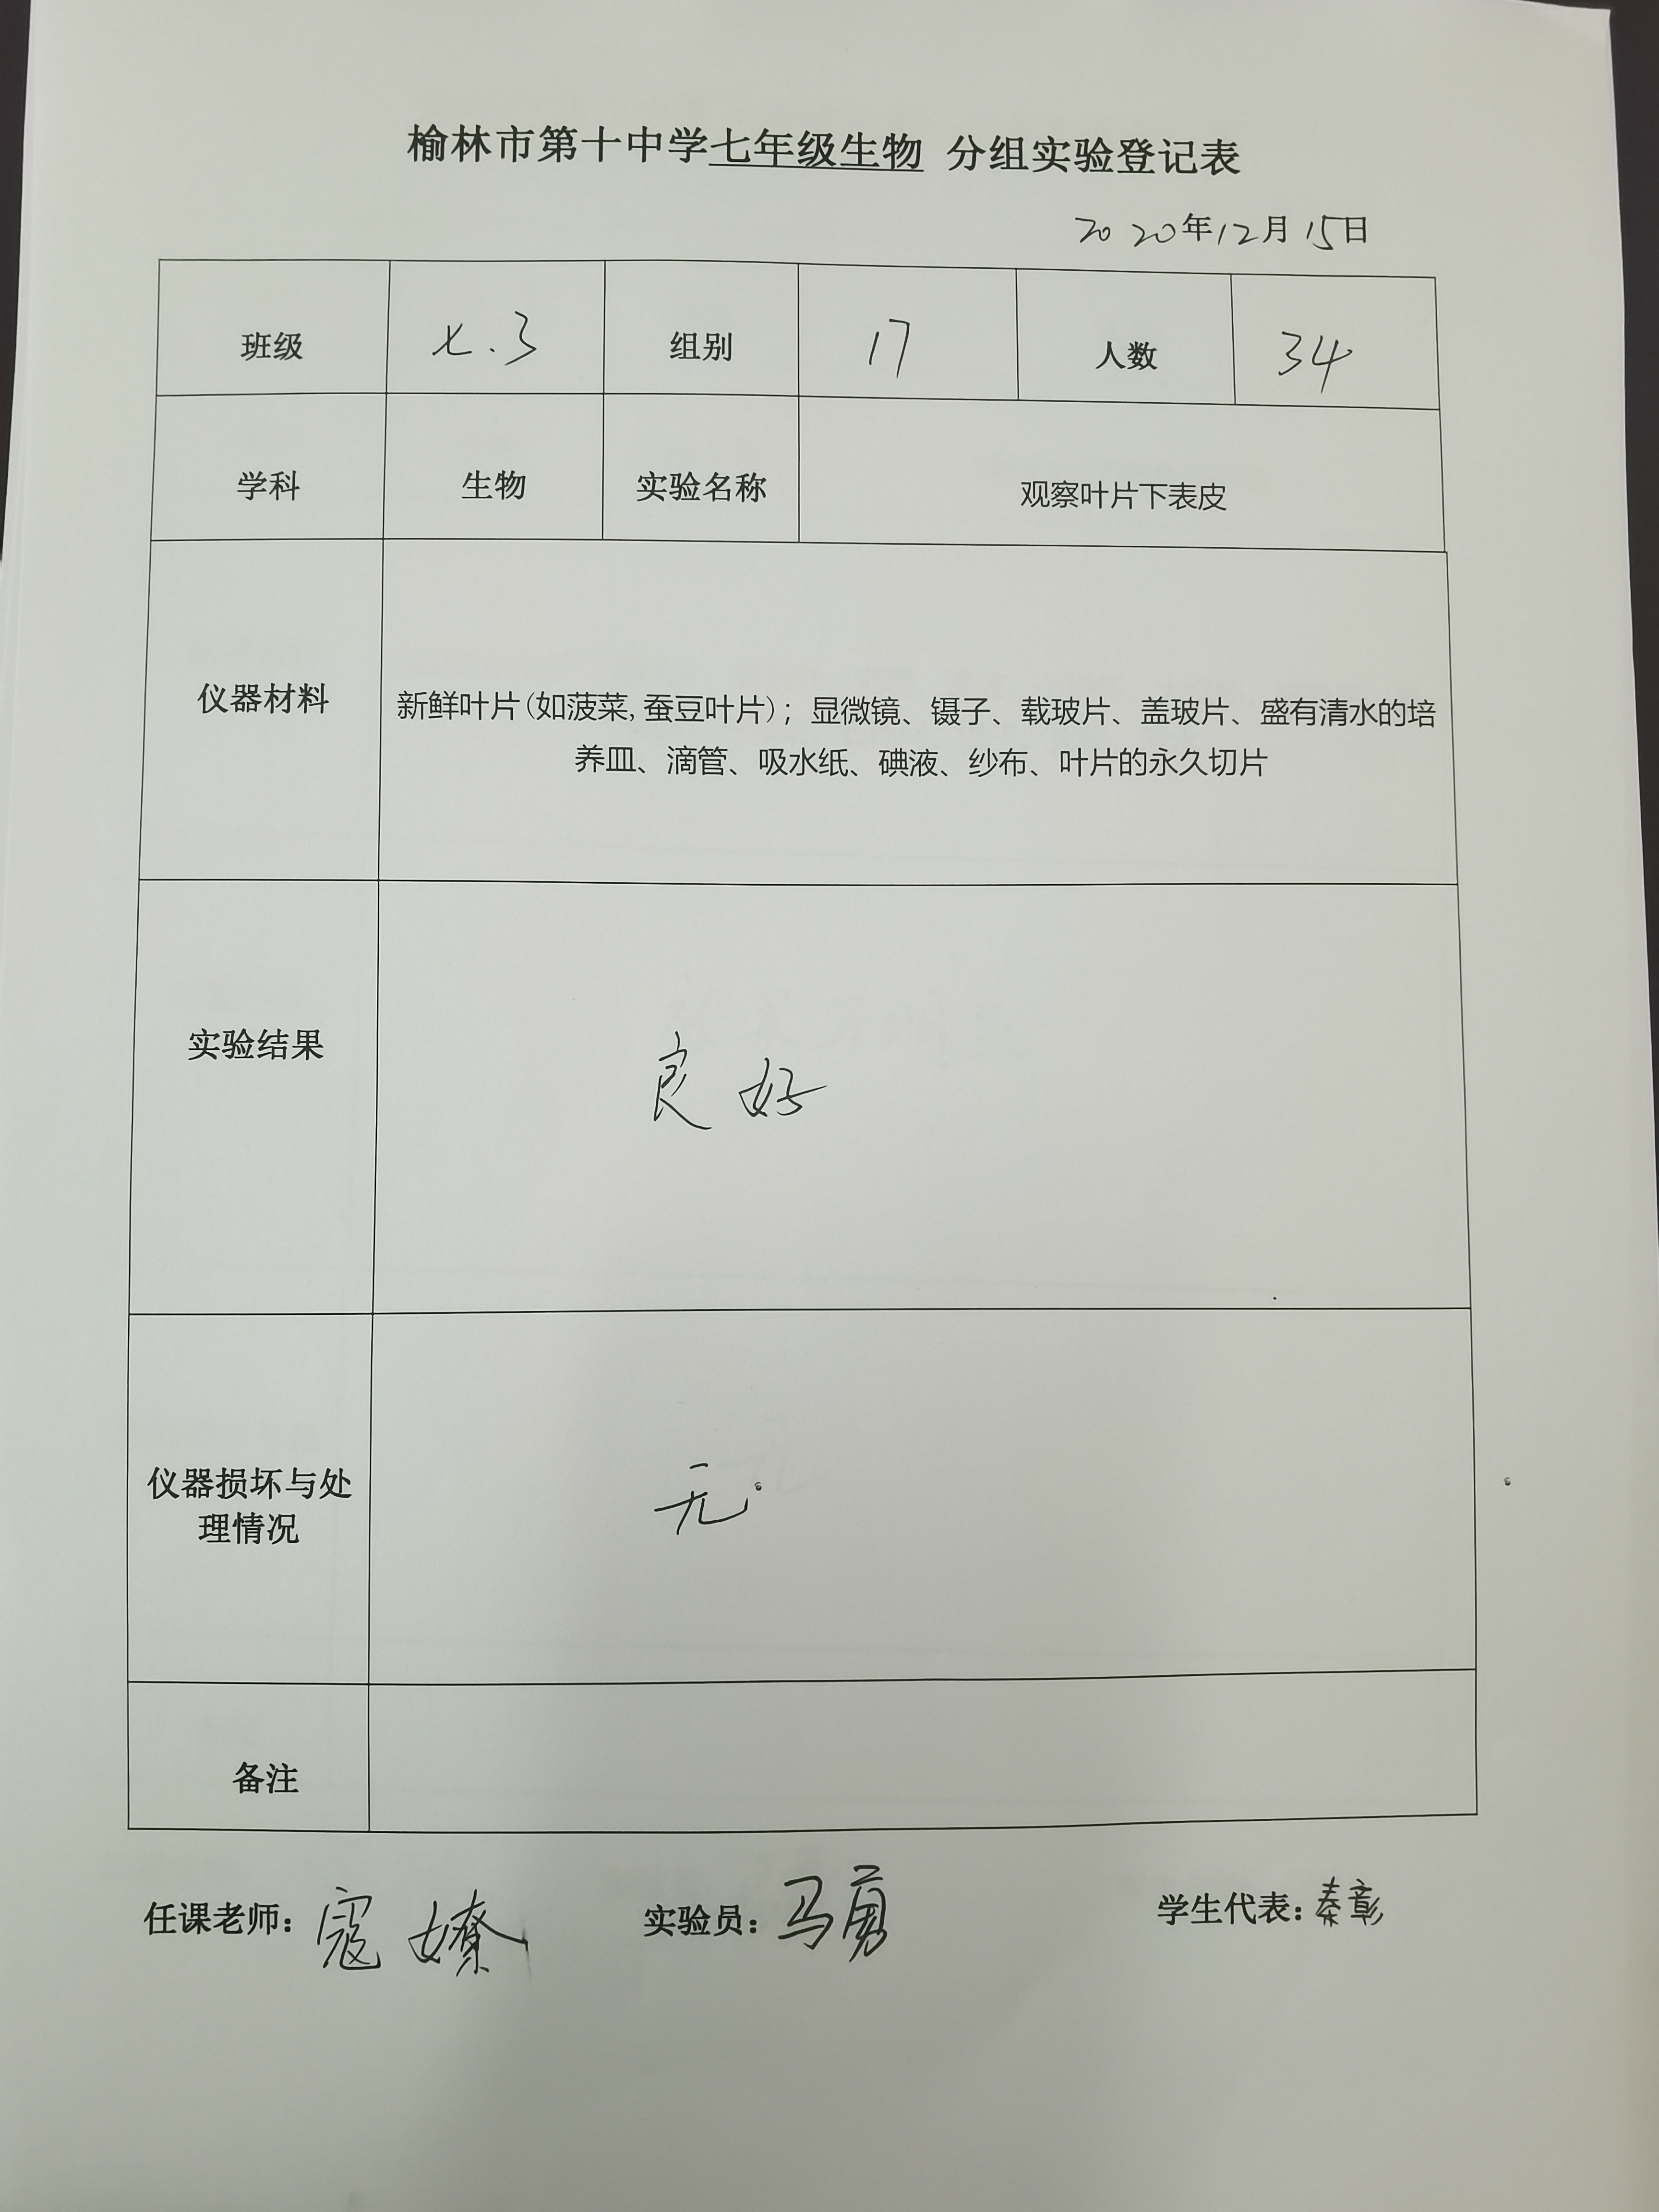 榆林市第十中学七年级生物 分组实验登记表
2020年12月15日
班级 七.3 组别 17 人数 34
学科 生物 实验名称 观察叶片下表皮
仪器材料
新鲜叶片(如菠菜,蚕豆叶片)；显微镜、镊子、载玻片、盖玻片、盛有清水的培
养皿、滴管、吸水纸、碘液、纱布、叶片的永久切片
实验结果 良好
仪器损坏与处
理情况
无.
备注
任课老师：寇嫽 实验员：马勇 学生代表：秦彰